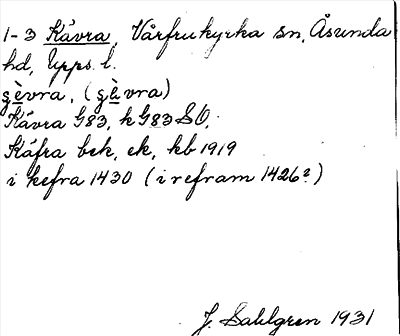 1-3 Kåvra, Vårfrukyrka sn, Åsunda
hd, Upps. l.
gèvra, (gàvra)
Kåvra G83, k G83 SO,
Kåfra bek, ek, kb 1919
i kefra 1430 (i refram 1426?)
J. Sahlgren 1931